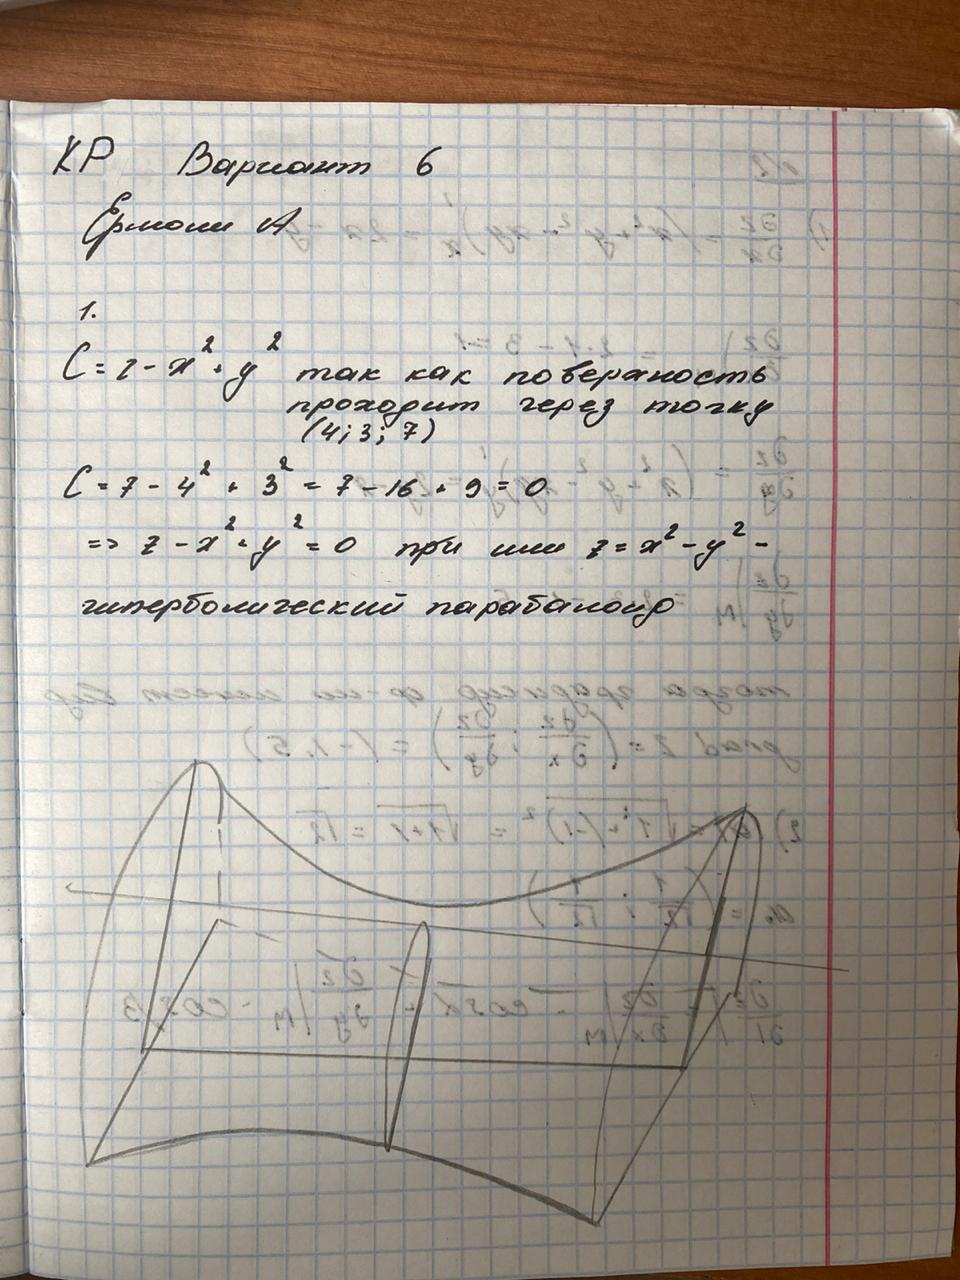 КР Вариант 6
Ермоли А
1.
C = z - x² + y² так как поверхность
проходит через точку
(4; 3; 7)
C = 7 - 4² + 3² = 7 - 16 + 9 = 0
=> z - x² + y² = 0 при или z = x² - y² -
гиперболический парабалоид